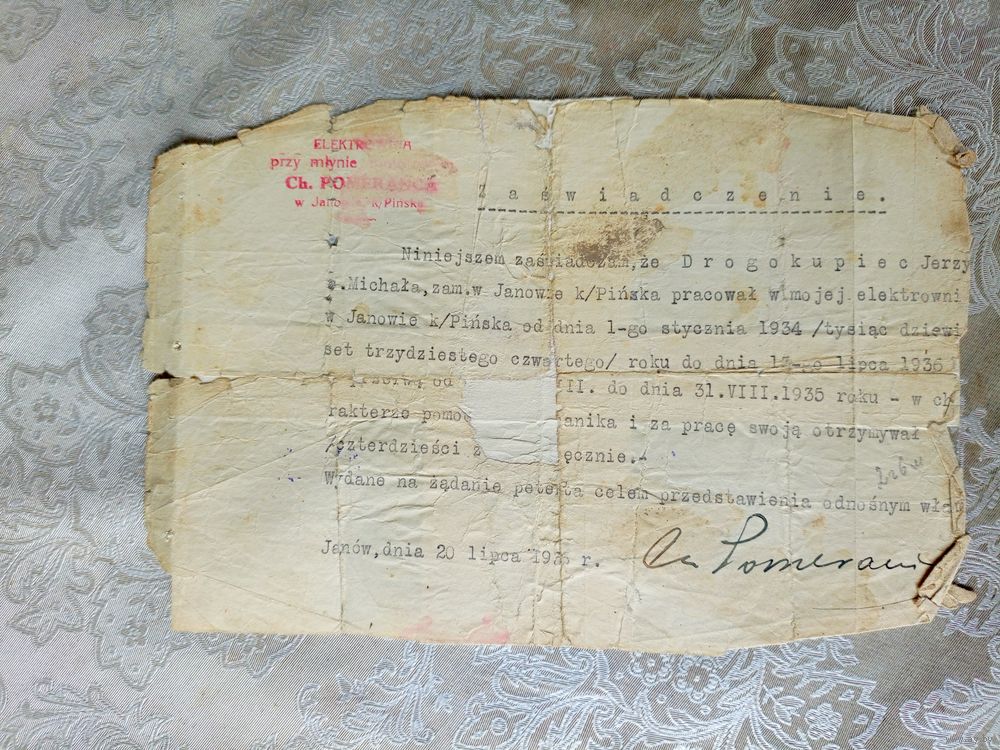 ELEKTROWNIA
przy młynie
Ch. POMERANCA
w Janowie k/Pińska
Zaświadczenie.
Niniejszem zaświadczam, że Drogokupiec Jerzy
s.Michała, zam.w Janowie k/Pińska pracował w mojej elektrowni
w Janowie k/Pińska od dnia 1-go stycznia 1934 /tysiąc dziewi
set trzydziestego czwartego/ roku do dnia lipca 1936
przerwą od II. do dnia 31.VIII.1935 roku - w ch
rakterze pomoc anika i za pracę swoją otrzymywał
/czterdzieści z ęcznie.-
Wydane na żądanie petenta celem przedstawienia odnośnym wła
Janów, dnia 20 lipca 193 r.
Ch Pomeranc